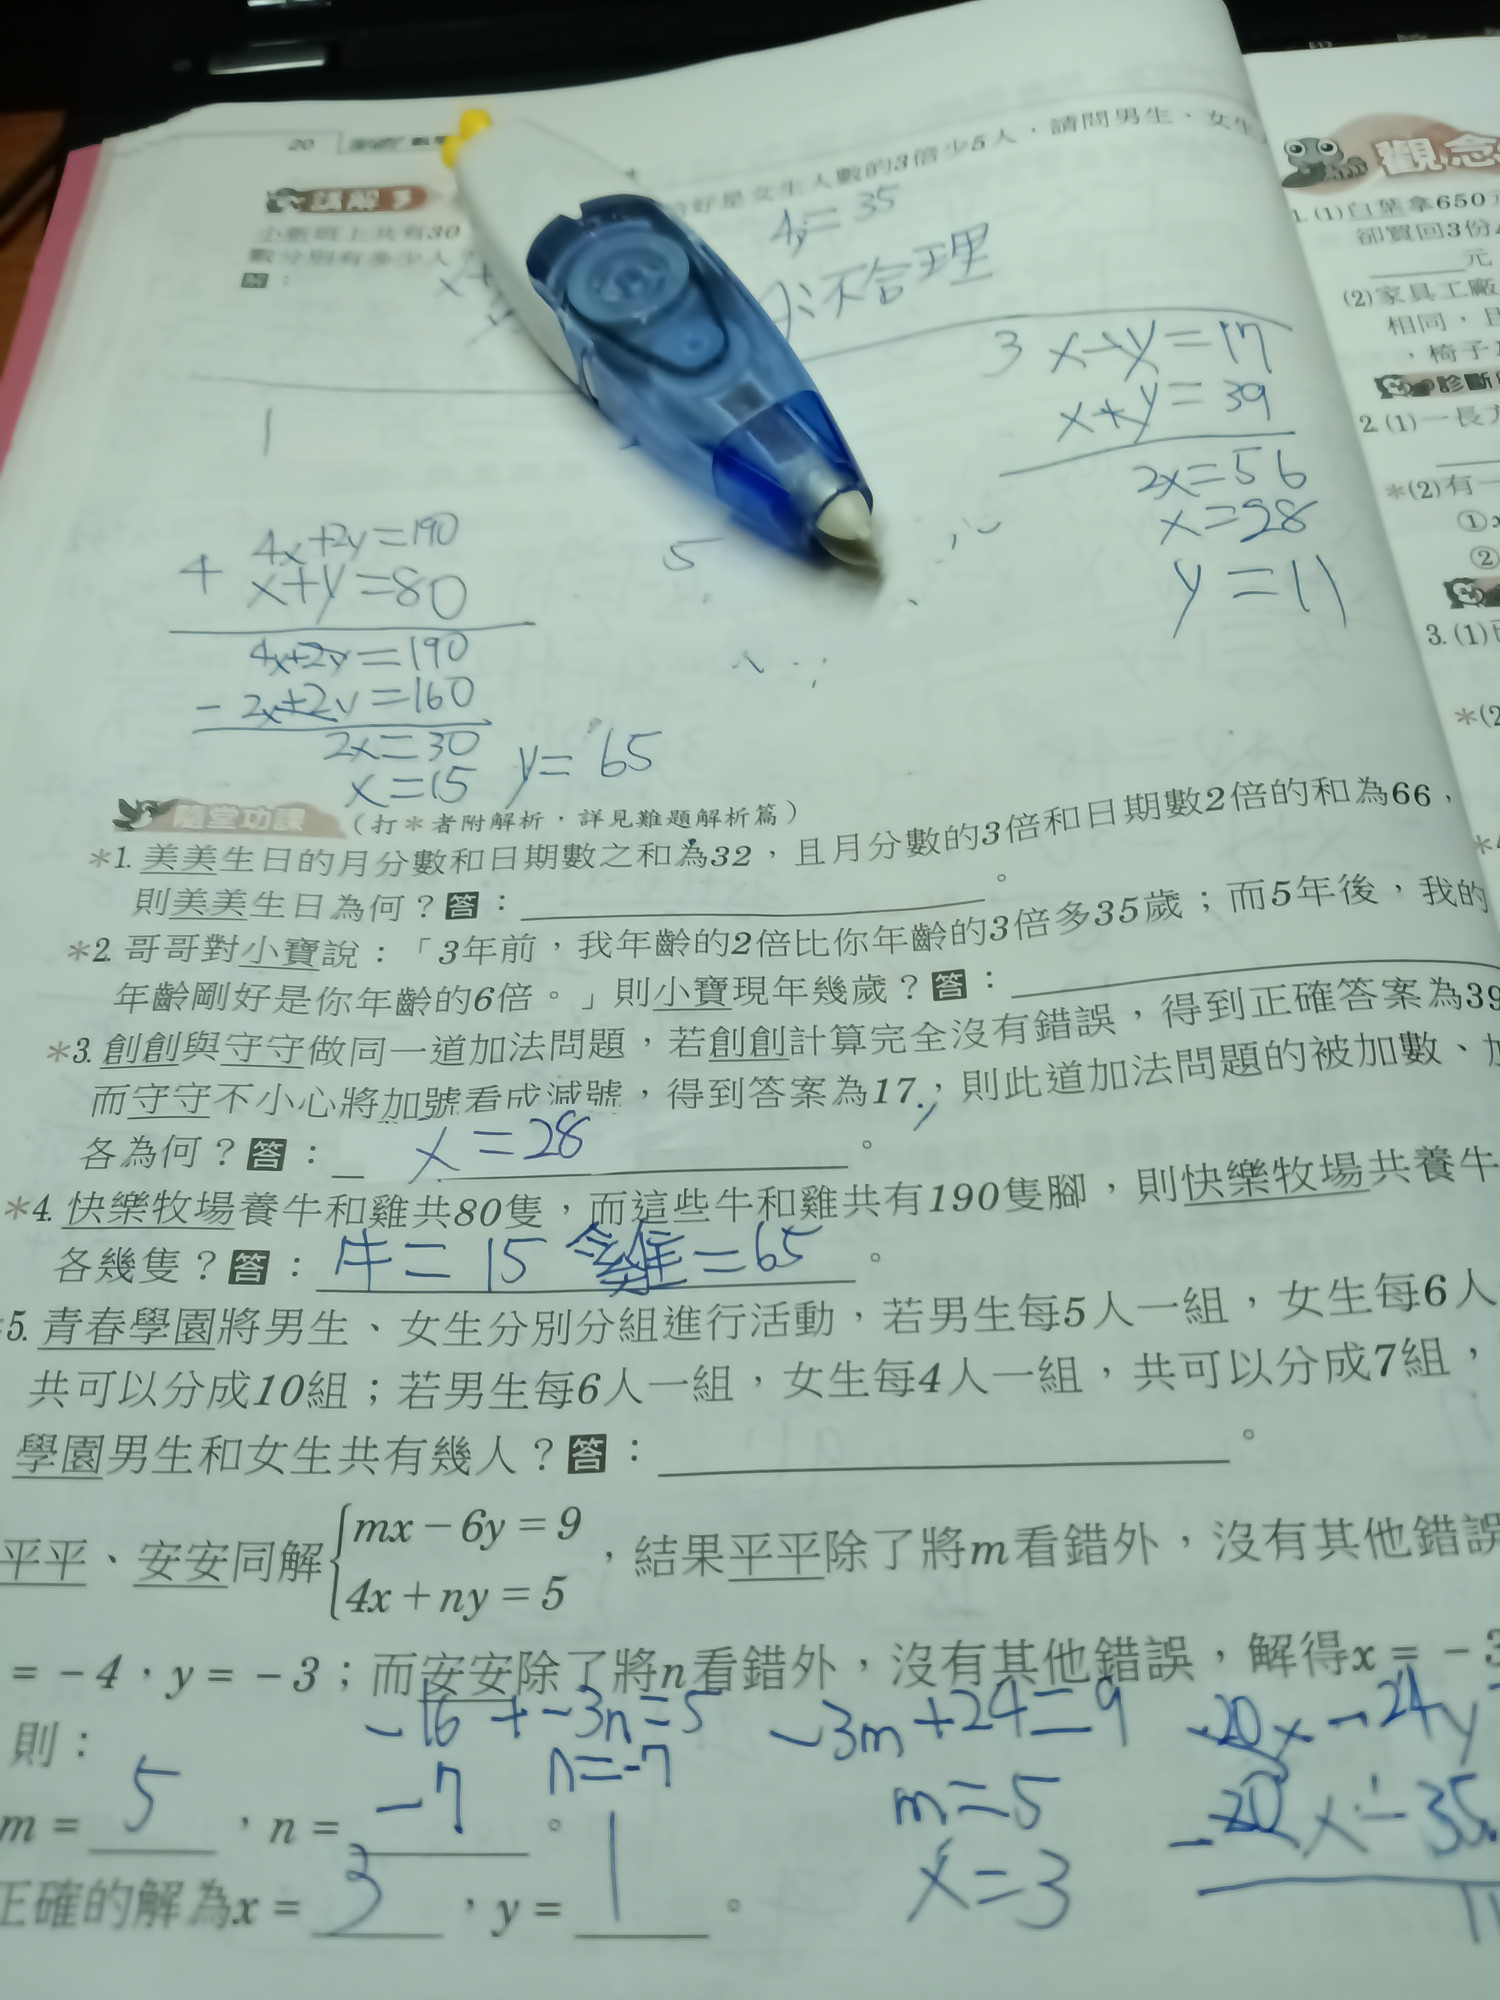 20
小
班上共有30
好是女生人數的3倍少5人，請問男生、女生
數分別有多少人？
解：
4y=35
不合理
3 x-y=17
x+y=39
2x=56
x=28
y=11
1
5
4x+2y=190
x+y=80
4x+2y=190
-2x+2y=160
2x=30
x=15 y=65
隨堂功課（打＊者附解析，詳見難題解析篇）
＊1. 美美生日的月分數和日期數之和為32，且月分數的3倍和日期數2倍的和為66，
則美美生日為何？答：。
＊2. 哥哥對小寶說：「3年前，我年齡的2倍比你年齡的3倍多35歲；而5年後，我的
年齡剛好是你年齡的6倍。」則小寶現年幾歲？答：
＊3. 創創與守守做同一道加法問題，若創創計算完全沒有錯誤，得到正確答案為39
而守守不小心將加號看成減號，得到答案為17，則此道加法問題的被加數、
各為何？答：x=28。
＊4. 快樂牧場養牛和雞共80隻，而這些牛和雞共有190隻腳，則快樂牧場共養牛
各幾隻？答：牛=15 雞=65。
5. 青春學園將男生、女生分別分組進行活動，若男生每5人一組，女生每6人
共可以分成10組；若男生每6人一組，女生每4人一組，共可以分成7組，
學園男生和女生共有幾人？答：。
平平、安安同解{mx-6y=9
4x+ny=5，結果平平除了將m看錯外，沒有其他錯誤
=-4，y=-3；而安安除了將n看錯外，沒有其他錯誤，解得x=-3
則：
-16+-3n=5
n=-7
-3m+24=9
m=5
x=3
-20x-24y
-20x-35
m=5，n=-7。
正確的解為x=3，y=1。
觀念
1.(1)白葉拿650元
卻買回3份
元
(2)家具工廠
相同，且
，椅子
診斷
2.(1)一長方
＊(2)有一
①x
②
3.(1)已
＊(2